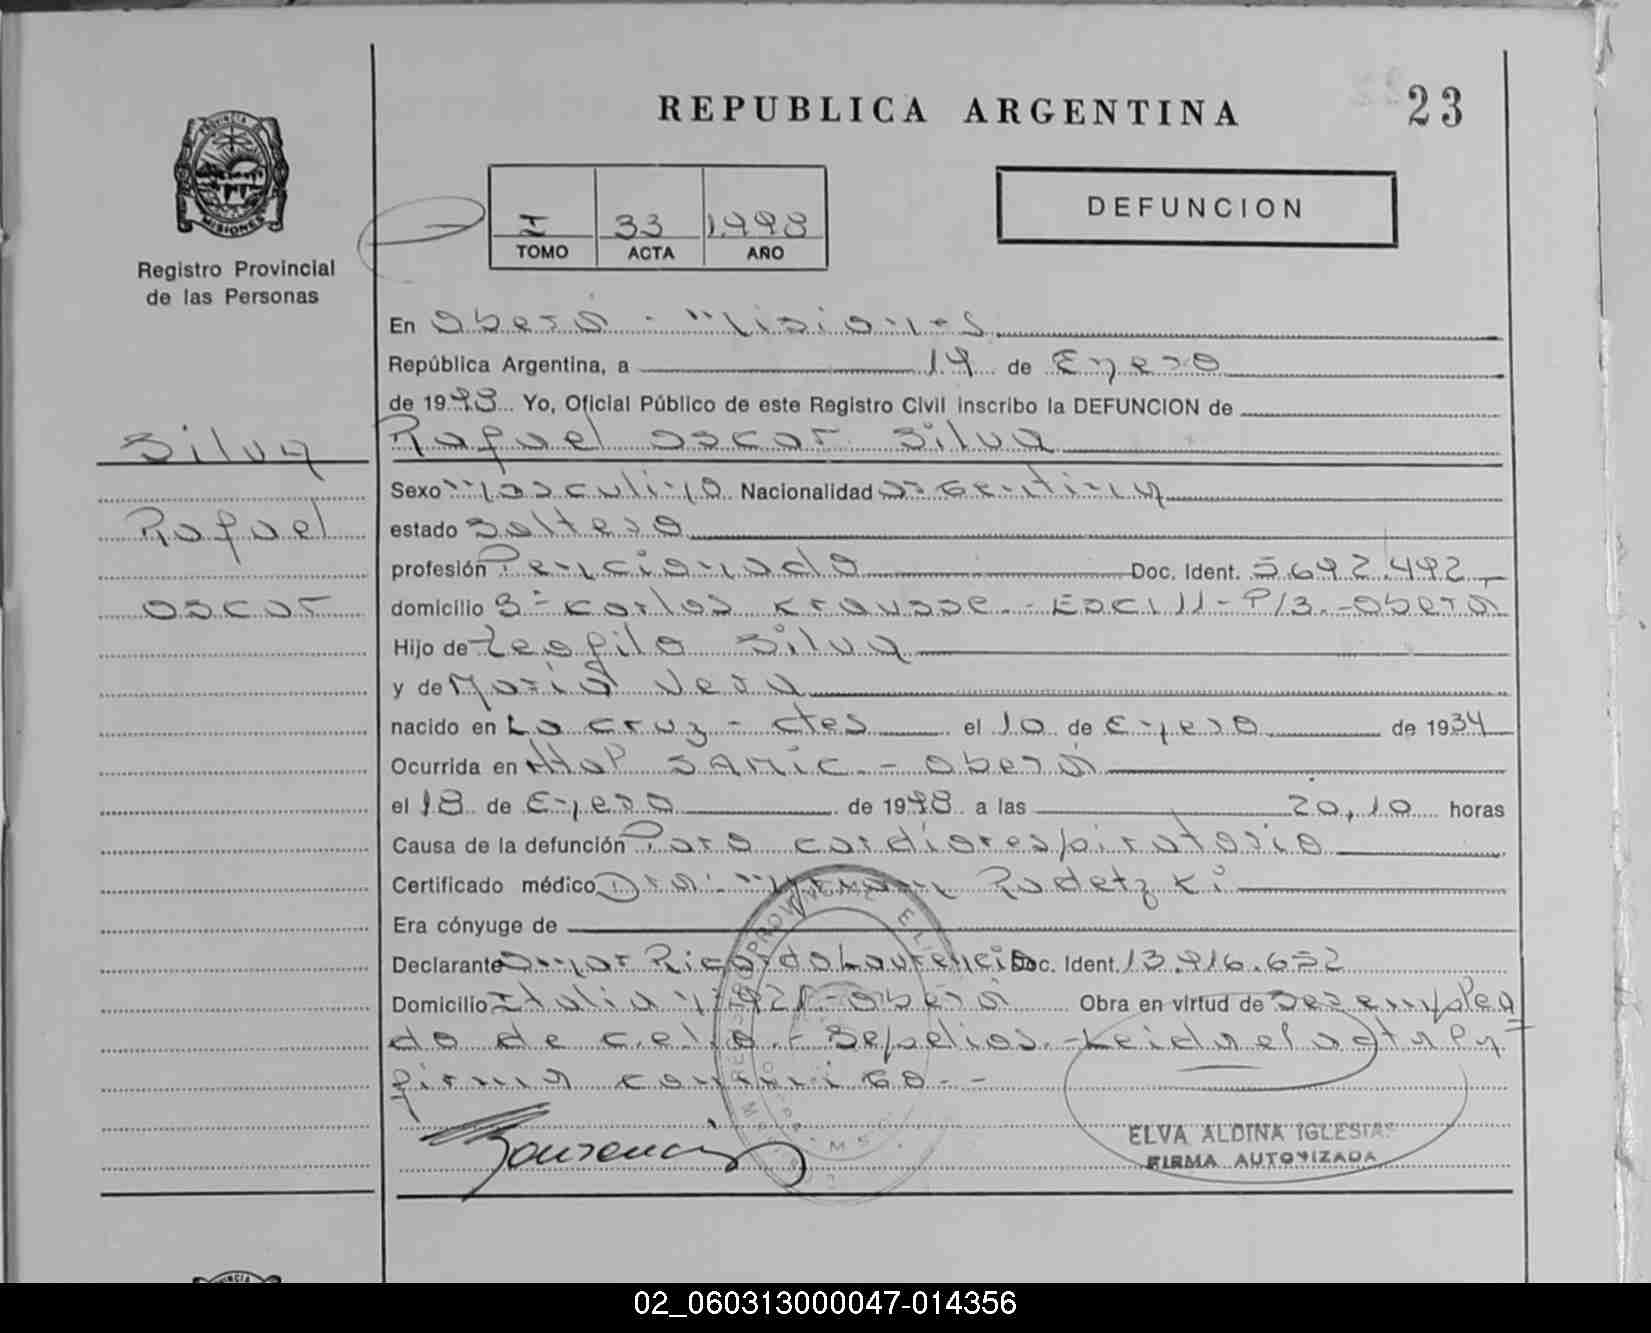 REPUBLICA ARGENTINA 23
PROVINCIA DE
MISIONES
Registro Provincial
de las Personas
I 33 1.998
TOMO ACTA AÑO
DEFUNCION
En Oberá - Misiones
República Argentina, a 19 de Enero
de 1998 Yo, Oficial Público de este Registro Civil inscribo la DEFUNCION de
Silva
Rafael Oscar Silva
Sexo Masculino Nacionalidad Argentina
Rafael
estado Soltero
profesión Pencionado Doc. Ident. 5.692.492
Oscar
domicilio Bº Carlos Krausse - Esc 11 - P/3 - Oberá
Hijo de Teofilo Silva
y de María Vera
nacido en La Cruz - Ctes el 10 de Enero de 1934
Ocurrida en Htal SAMIC - Oberá
el 18 de Enero de 1998 a las 20,10 horas
Causa de la defunción Paro cardiorespiratorio
Certificado médico Dra. Myrian Rudetzki
Era cónyuge de
Declarante Omar Ricardo Laurencio Doc. Ident. 13.916.652
Domicilio Italia Nº 921 - Oberá Obra en virtud de Ser emplea
do de c.e.l.o. - Sepelios. - Leida el acta en
firma conmigo. -
Laurencio
ELVA ALDINA IGLESIAS
FIRMA AUTORIZADA
02_060313000047-014356